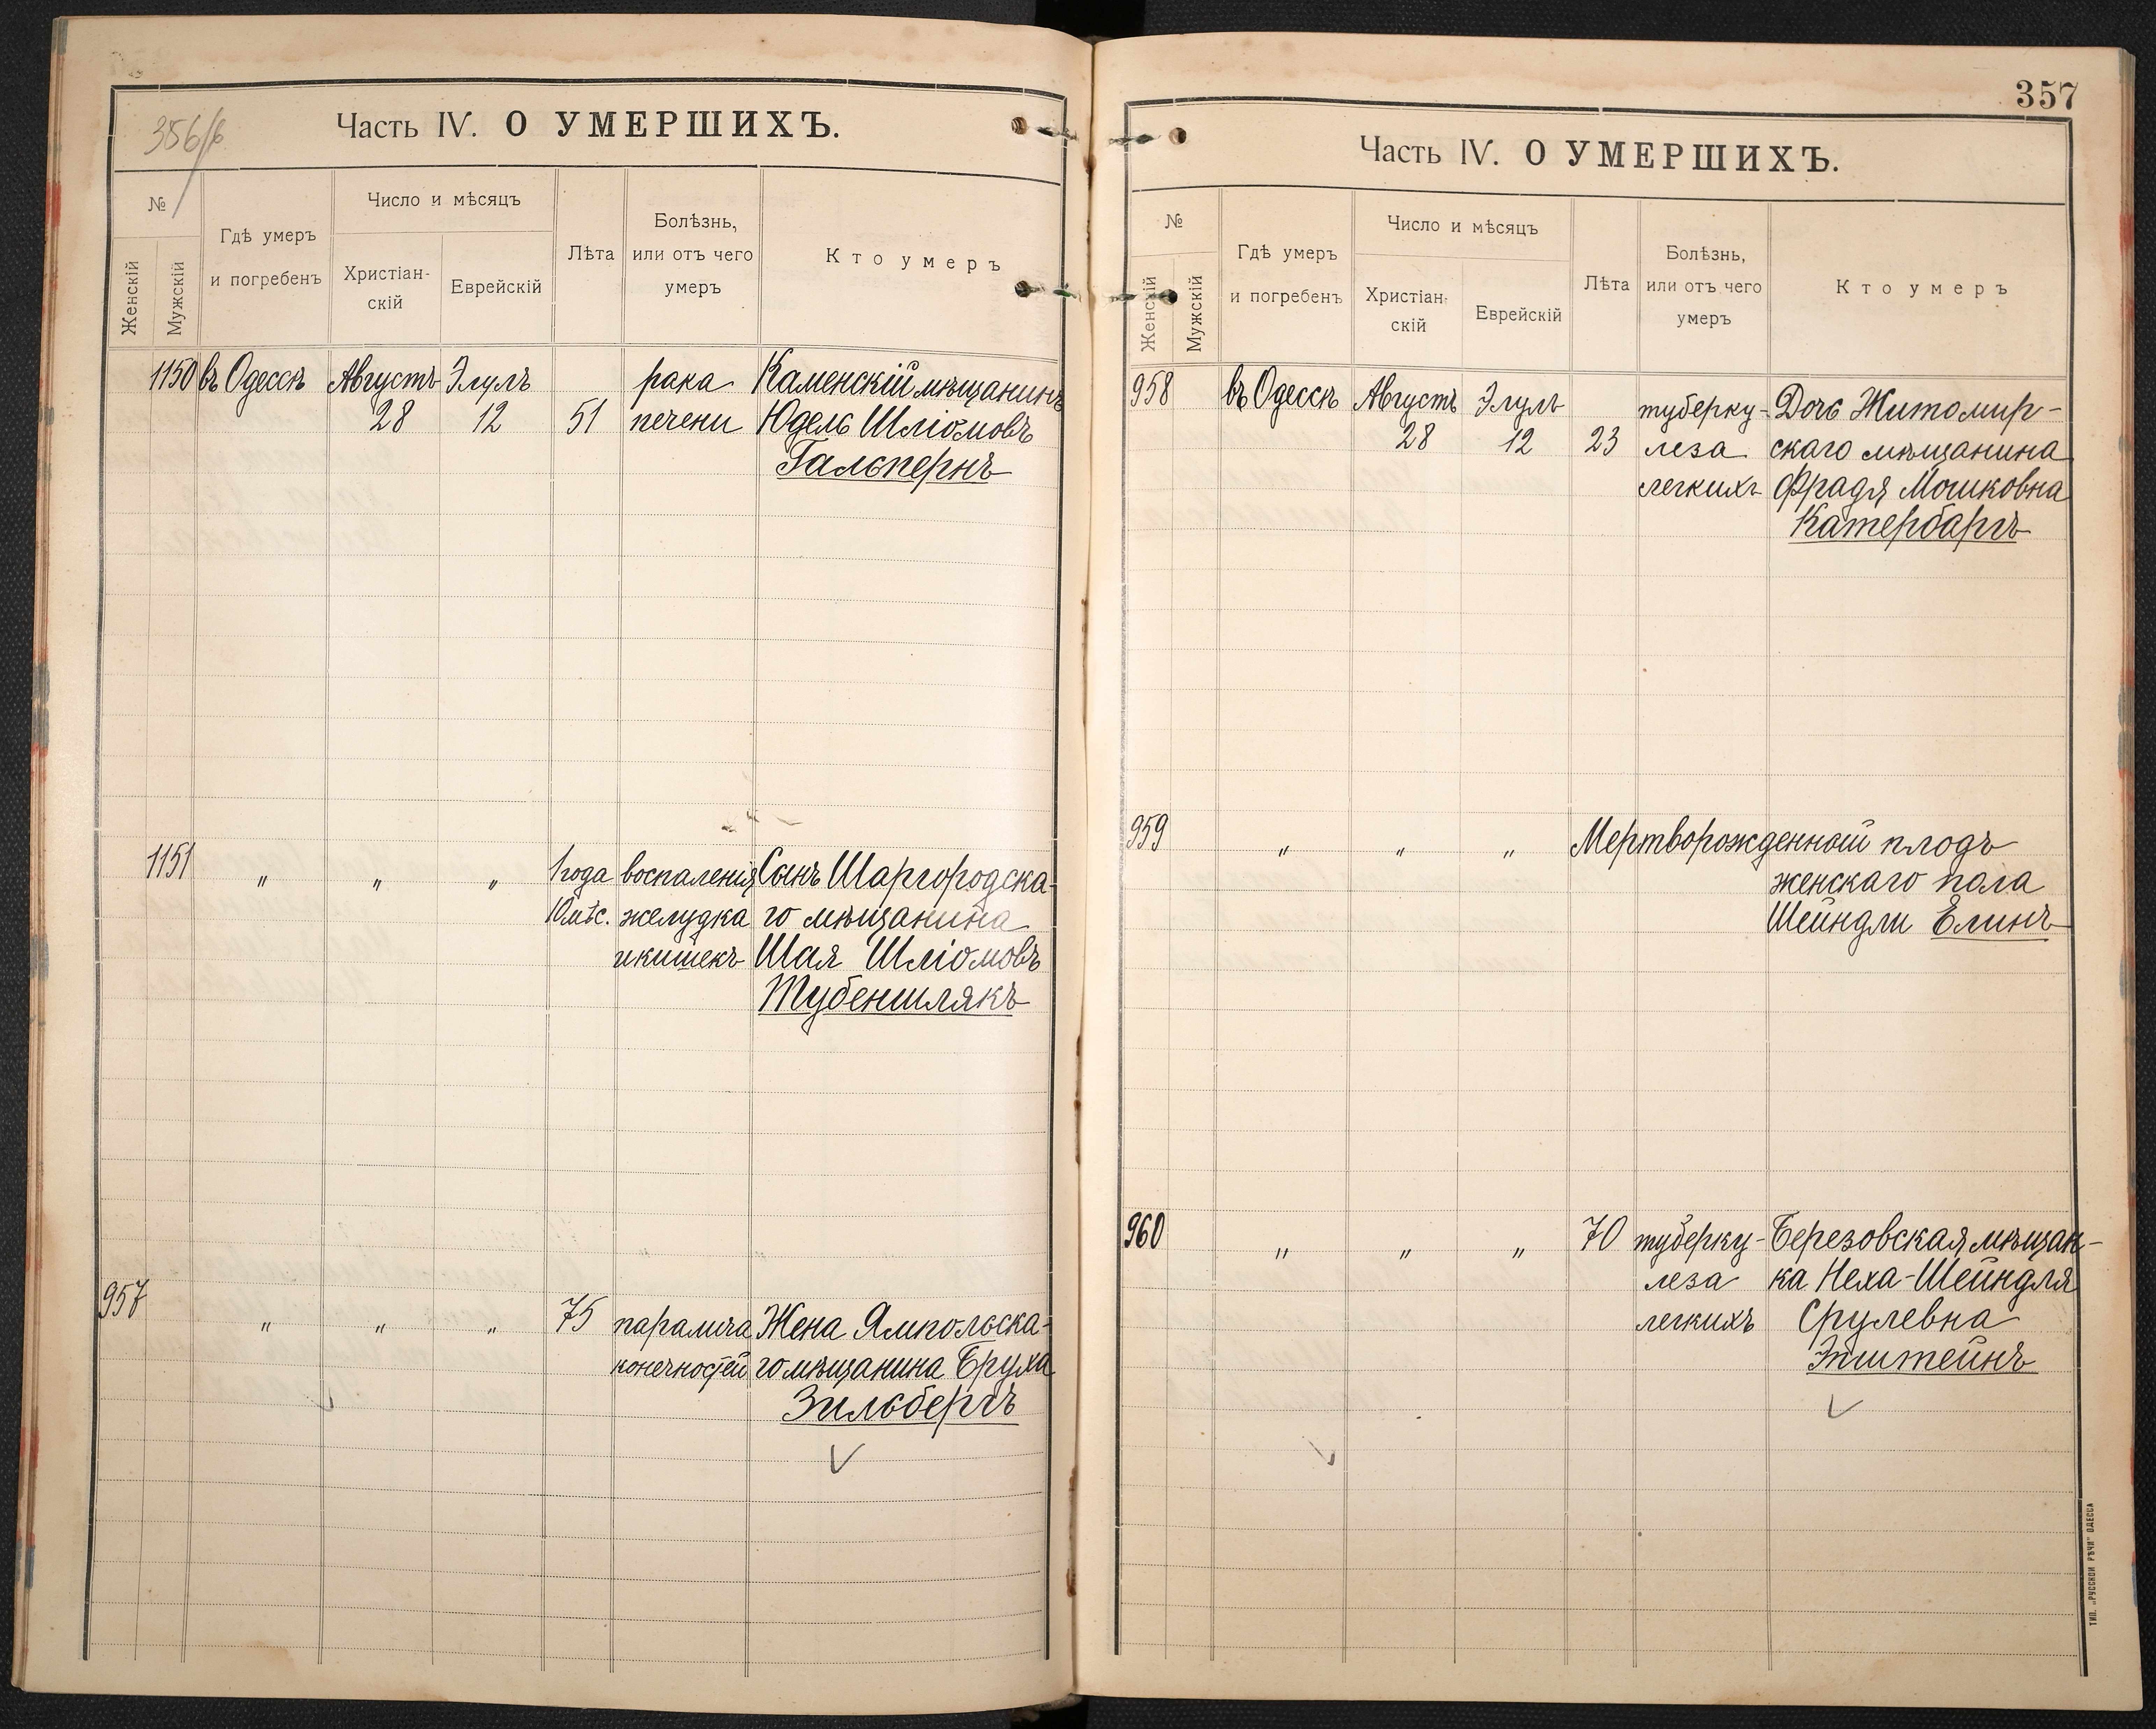 356/б
Часть IV. О УМЕРШИХЪ.
№
Женскій
Мужскій
Гдѣ умеръ
и погребенъ
Число и мѣсяцъ
Христіан-
скій
Еврейскій
Лѣта
Болѣзнь,
или отъ чего
умеръ
Кто умеръ
1150 въ Одессѣ Августъ Элулъ рака Каменскій мѣщанинъ
28 12 51 печени Юдель Шліомовъ
Гальпернъ
1151 " " " 1 года воспаленія Сынъ Шаргородска-
10 мѣс. желудка го мѣщанина
и кишекъ Шая Шліомовъ
Тубеншлякъ
957 " " " 75 паралича Жена Ямпольска-
конечностей го мѣщанина Бруха
Зильбергъ
357
Часть IV. О УМЕРШИХЪ.
№
Женскій
Мужскій
Гдѣ умеръ
и погребенъ
Число и мѣсяцъ
Христіан-
скій
Еврейскій
Лѣта
Болѣзнь,
или отъ чего
умеръ
Кто умеръ
958 въ Одессѣ Августъ Элулъ туберку- Дочь Житомир-
28 12 23 леза скаго мѣщанина
легкихъ Фрадя Мошковна
Катербаргъ
959 " " " Мертворожденный плодъ
женскаго пола
Шейндли Елинъ
960 " " " 70 туберку- Березовская мѣщан-
леза ка Неха-Шейндля
легкихъ Срулевна
Эпштейнъ
ТИП. „РУССКОЙ РѢЧИ" ОДЕССА